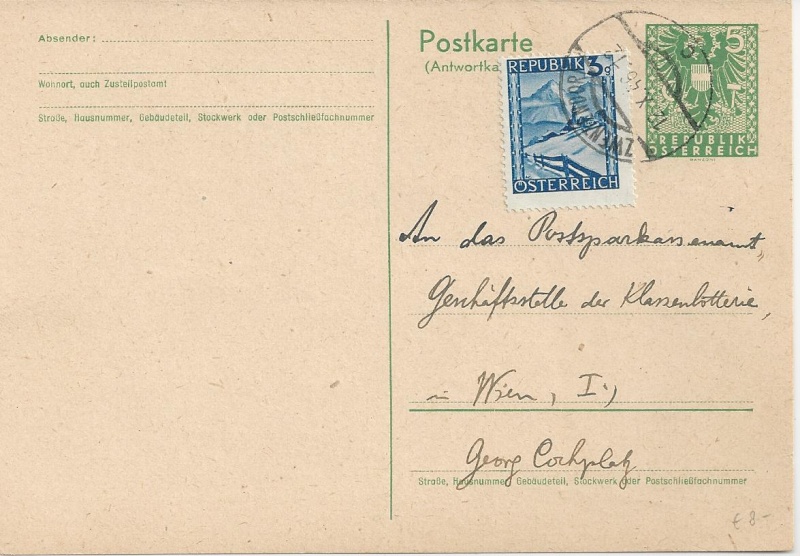 Absender:
Wohnort, auch Zustellpostamt
Straße, Hausnummer, Gebäudeteil, Stockwerk oder Postschließfachnummer
Postkarte
(Antwortka
REPUBLIK 3g
ÖSTERREICH
5
REPUBLIK
ÖSTERREICH
An das Postsparkassenamt,
Geschäftsstelle der Klassenlotterie,
in Wien, I.,
Georg Cochplatz
Straße, Hausnummer, Gebäudeteil, Stockwerk oder Postschließfachnummer
€ 8.-